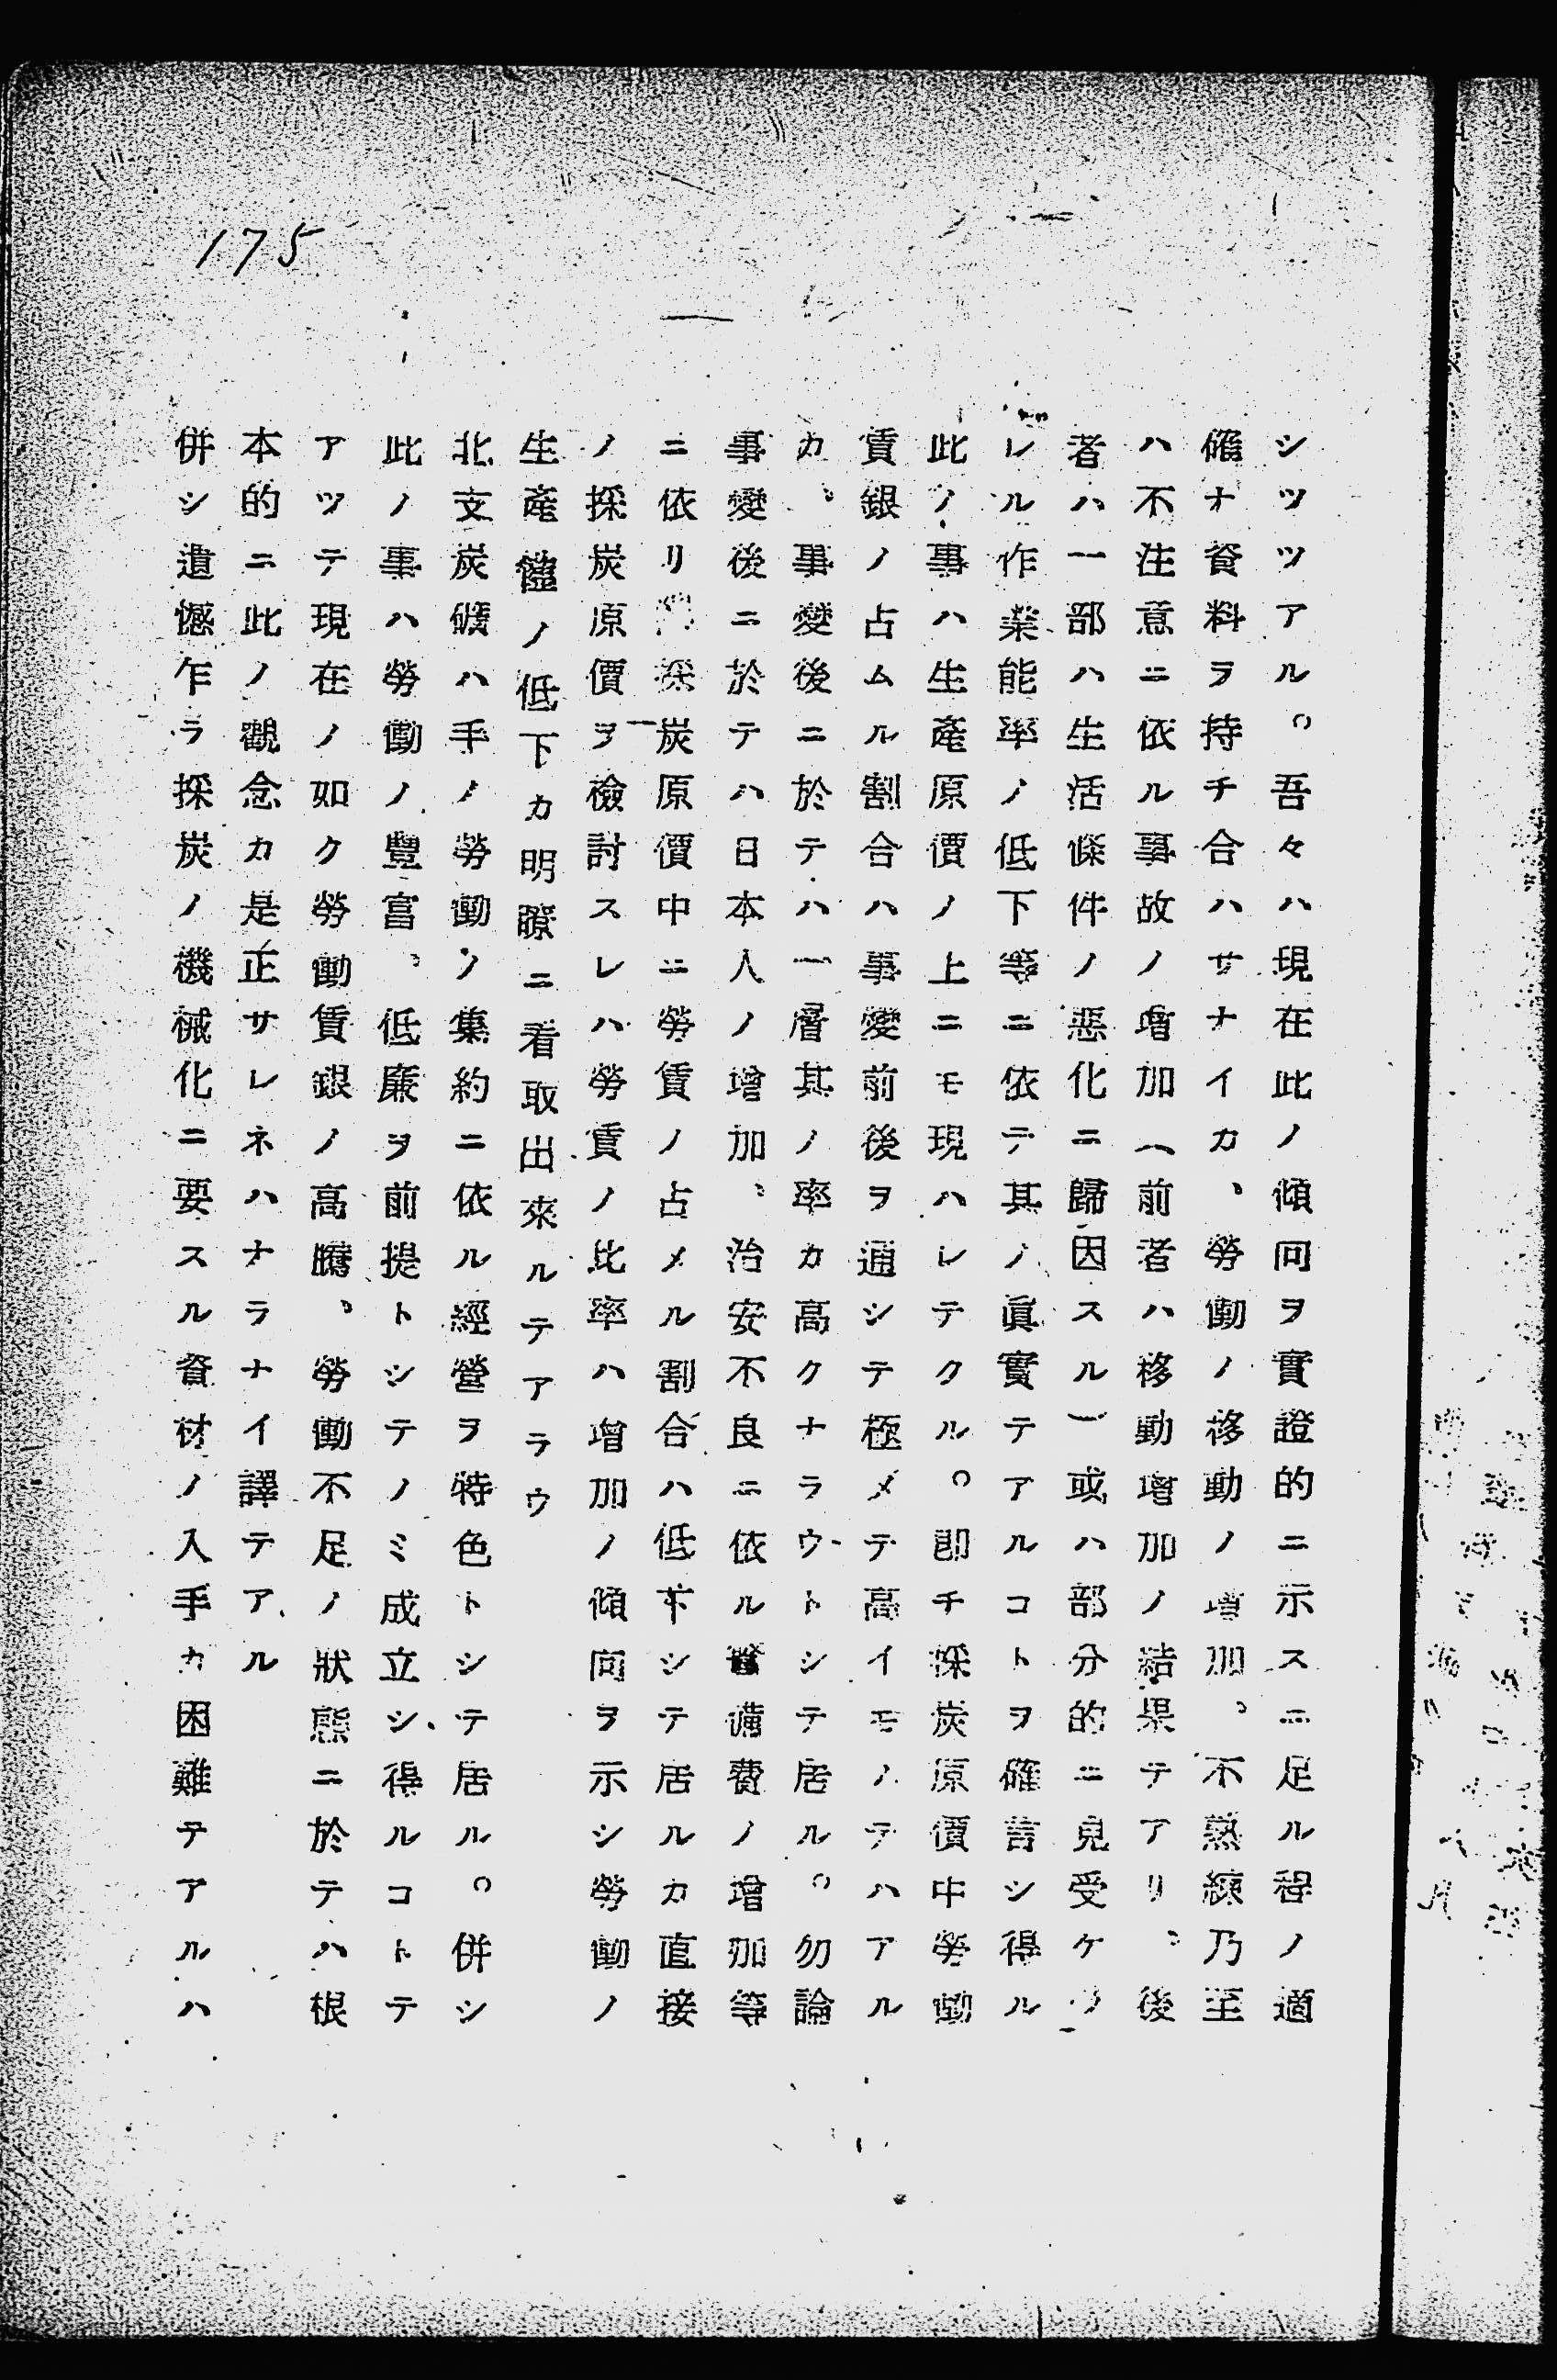 175
シツツアル。吾々ハ現在此ノ傾向ヲ實證的ニ示スニ足ル程ノ適
確ナ資料ヲ持チ合ハサナイカ、勞働ノ移動ノ増加、不熟練乃至
ハ不注意ニ依ル事故ノ増加（前者ハ移動増加ノ結果テアリ、後
者ハ一部ハ生活條件ノ惡化ニ歸因スル）或ハ部分的ニ見受ケラ
レル作業能率ノ低下等ニ依テ其ノ眞實テアルコトヲ確言シ得ル
此ノ事ハ生産原價ノ上ニモ現ハレテクル。卽チ採炭原價中勞働
賃銀ノ占ムル割合ハ事變前後ヲ通シテ極メテ高イモノテハアル
カ、事變後ニ於テハ一層其ノ率カ高クナラウトシテ居ル。勿論
事變後ニ於テハ日本人ノ增加、治安不良ニ依ル警備費ノ增加等
ニ依リ採炭原價中ニ勞賃ノ占メル割合ハ低下シテ居ルカ直接
ノ採炭原價ヲ檢討スレハ勞賃ノ比率ハ增加ノ傾向ヲ示シ勞働ノ
生産性ノ低下カ明瞭ニ看取出來ルテアラウ
北支炭礦ハ手ノ勞働ノ集約ニ依ル經營ヲ特色トシテ居ル。併シ
此ノ事ハ勞働ノ豐富、低廉ヲ前提トシテノミ成立シ得ルコトテ
アツテ現在ノ如ク勞働賃銀ノ高騰、勞働不足ノ狀態ニ於テハ根
本的ニ此ノ觀念カ是正サレネハナラナイ譯テアル
併シ遺憾乍ラ採炭ノ機械化ニ要スル資材ノ入手カ困難テアルハ